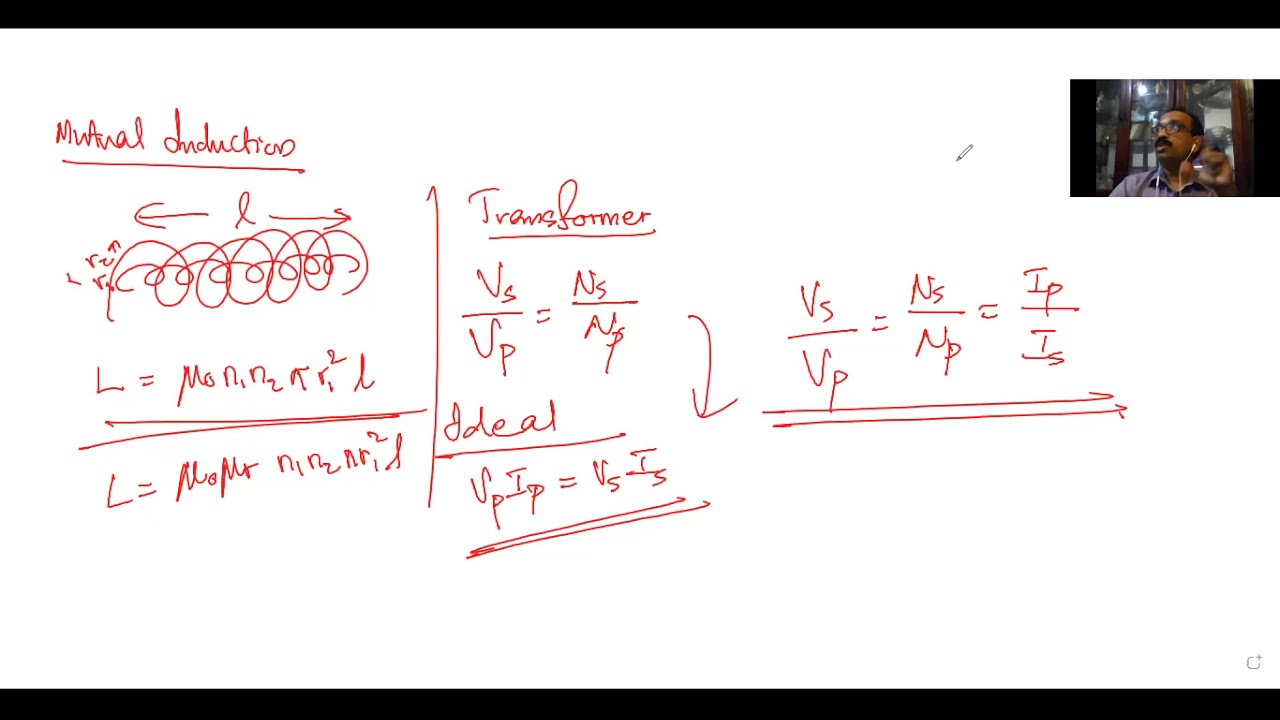 Mutual Induction
l
r₂
r₁
L = μ₀ n₁ n₂ π r₁² l
L = μ₀ μr n₁ n₂ π r₁² l
Transformer
Vs/Vp = Ns/Np
Ideal
Vp Ip = Vs Is
Vs/Vp = Ns/Np = Ip/Is